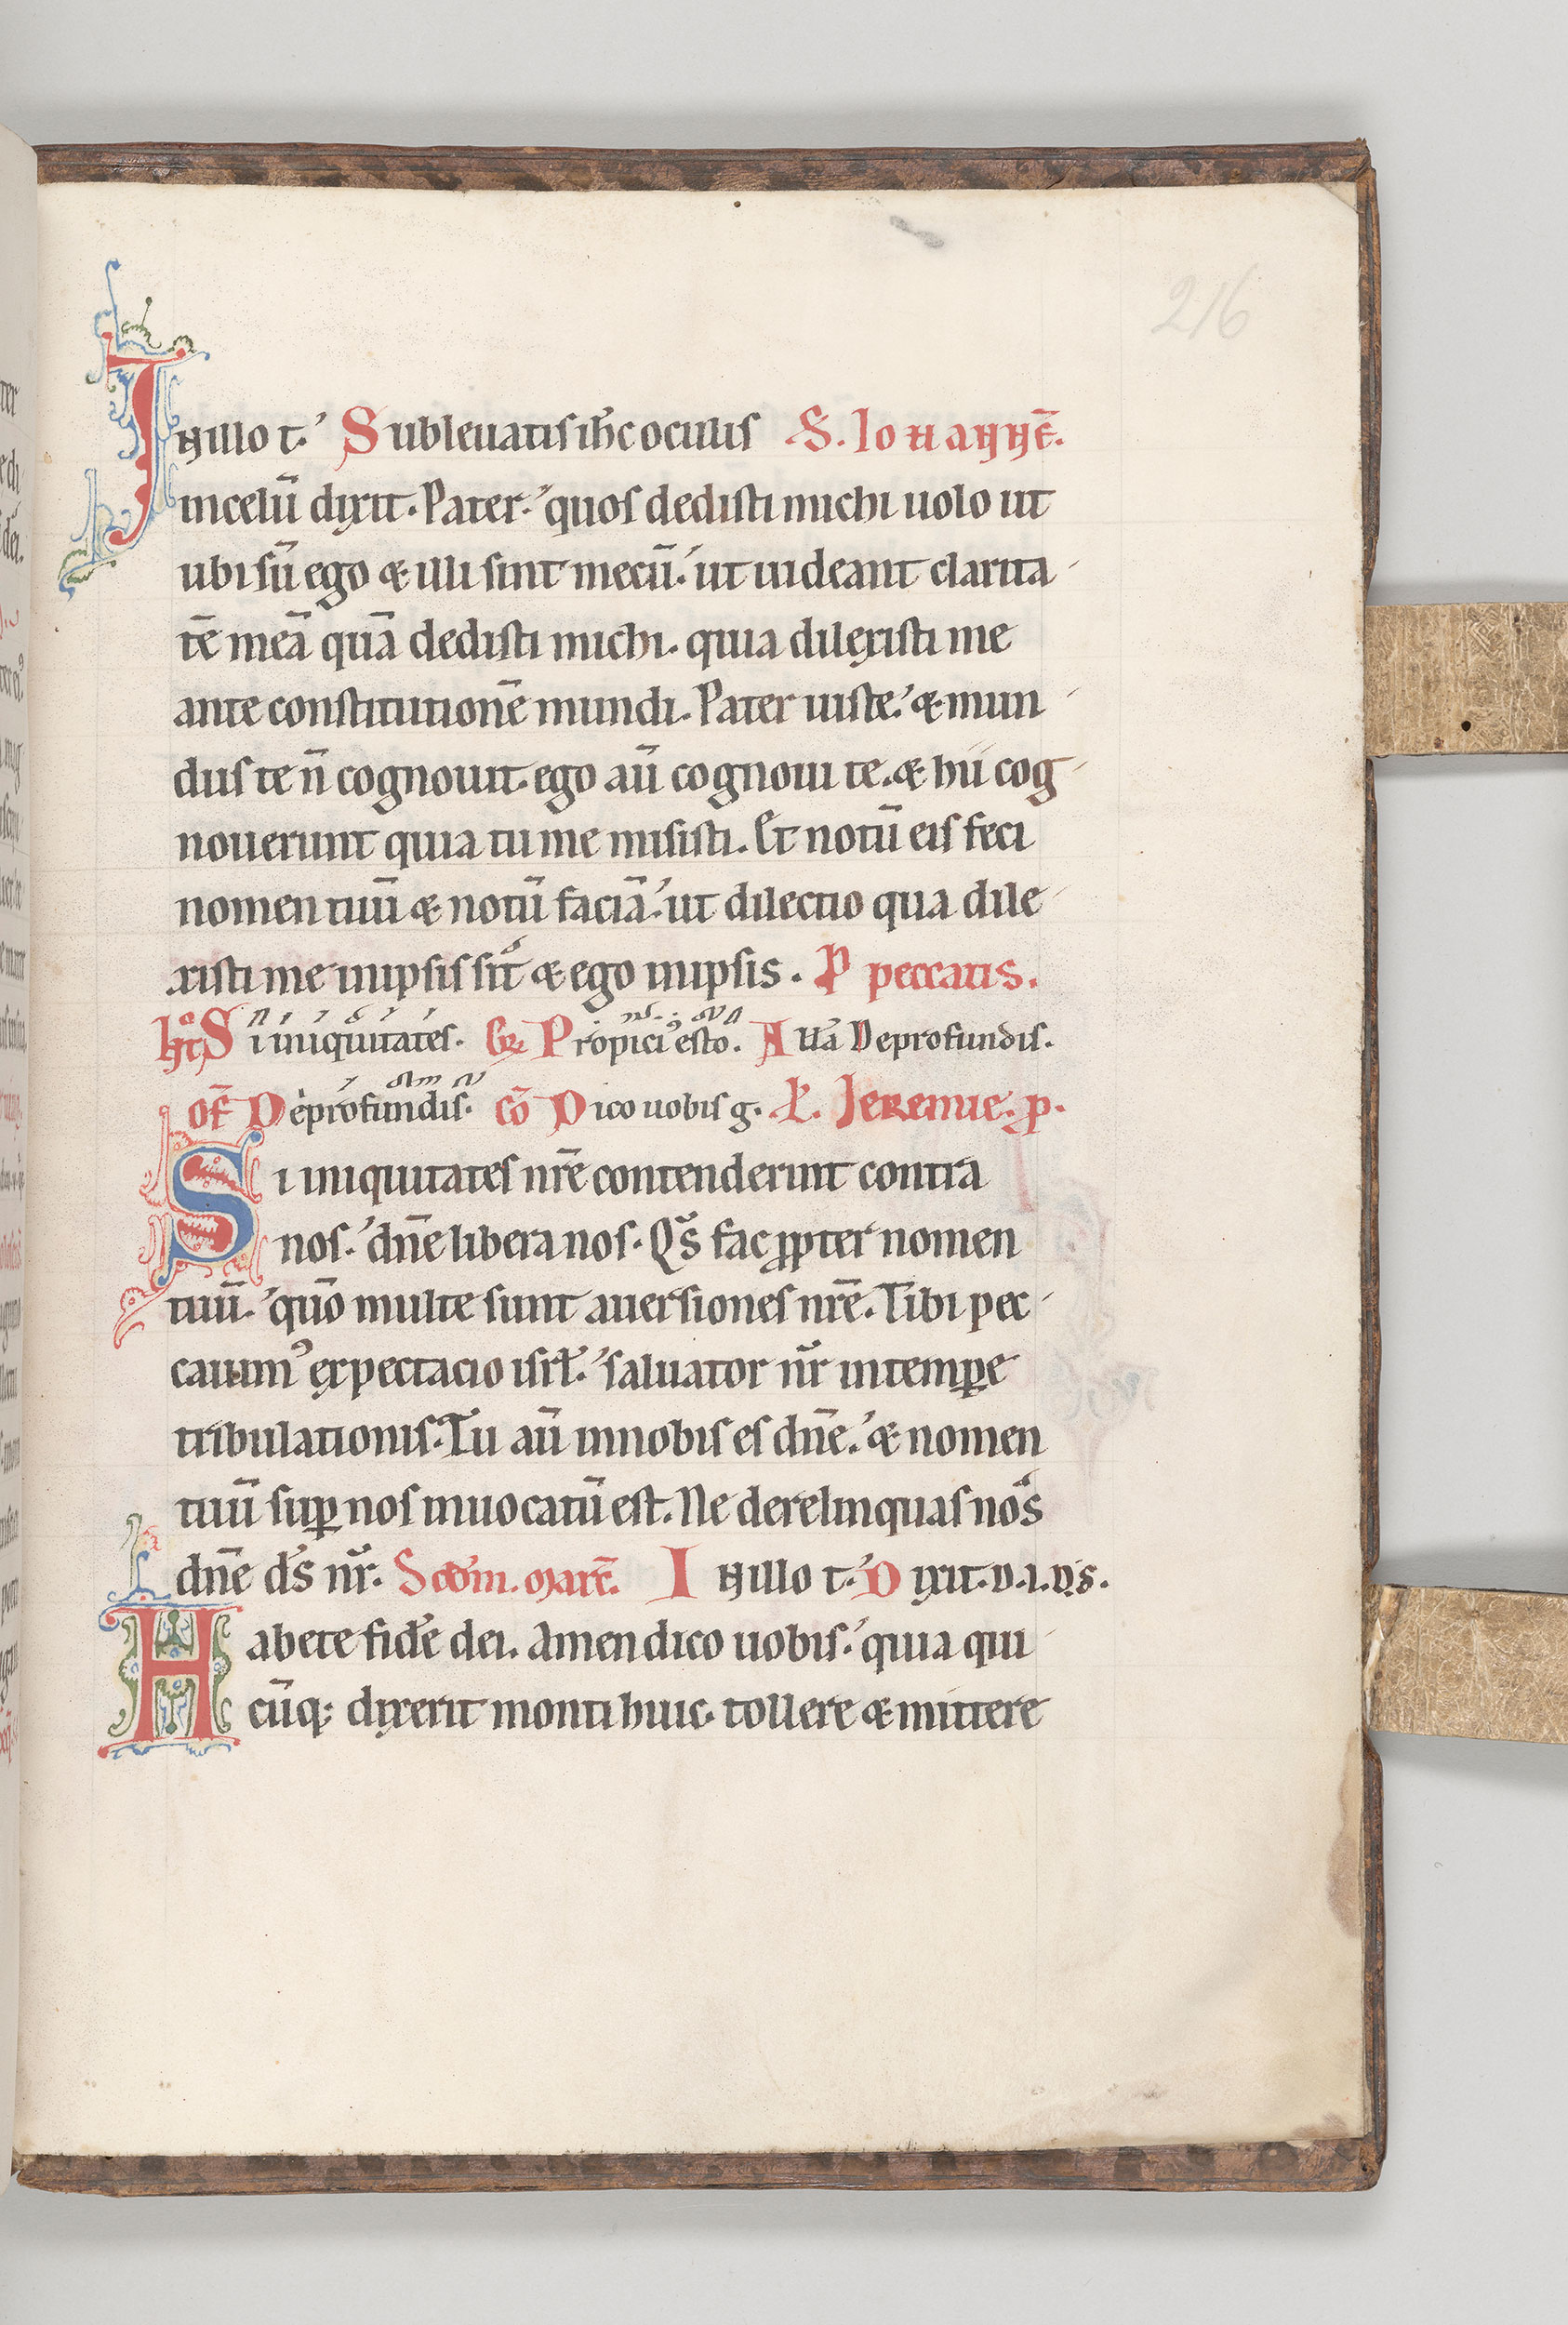 216
In illo t. Subleuatis ih̄c oculis S. Iohannē.
in celū dixit. Pater. quos dedisti michi uolo ut
ubi sū ego & illi sint mecū. ut uideant clarita
tē meā quā dedisti michi. quia dilexisti me
ante constitutionē mundi. Pater iuste. & mun
dus te n̄ cognouit. ego aū cognoui te. & hii cog
nouerunt quia tu me misisti. Et notū eis feci
nomen tuū & notū faciā. ut dilectio qua dile
xisti me in ipsis sit & ego in ipsis. P peccatis.
Si iniquitates. Gr̄ Propici esto. A Ił̄a Deprofundis.
Of̄ Deprofundis. Cō Dico uobis g. Ieremie. p.
Si iniquitates nr̄e contenderint contra
nos. dn̄e libera nos. Qs̄ fac ꝓpter nomen
tuū. quō multe sunt auersiones nr̄e. Tibi pec
cauimꝰ expectacio isrł. saluator nr̄ in temꝑe
tribulationis. Tu aū in nobis es dn̄e. & nomen
tuū suꝑ nos inuocatū est. Ne derelinquas nos
dn̄e ds̄ nr̄. Scdm̄. marc̄. In illo t. Dixit. d. i. d. s.
Habete fidē dei. Amen dico uobis. quia qui
cūq; dixerit monti huic. tollere & mittere